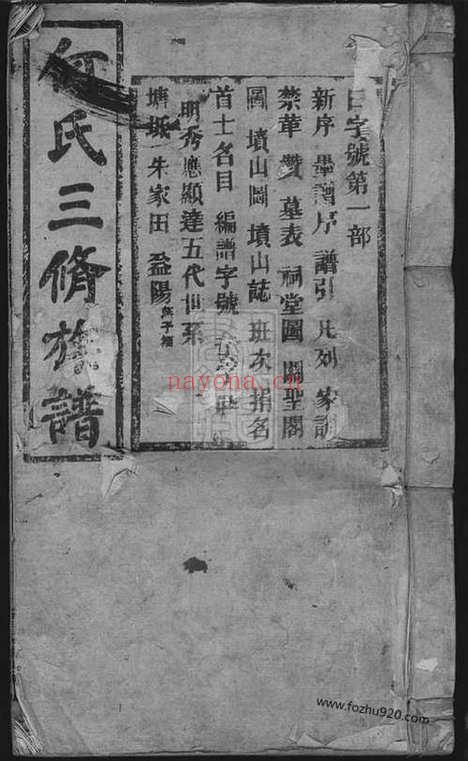 何氏三脩族譜
日字號第一部
新序 舉譜序 譜引 凡列 家訓
禁革 贊 墓表 祠堂圖 關聖閣
圖 墳山圖 墳山誌 班次 捐名
首士名目 編譜字號
明秀應顯達五代世系
塘坂 朱家田 益陽
nayona.cn
www.fozhu920.com